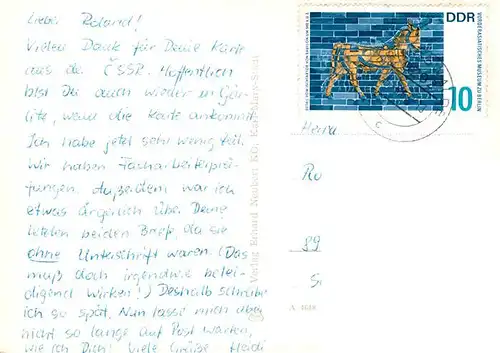 Lieber Roland!
Vielen Dank für Deine Karte
aus der ČSSR. Hoffentlich
bist Du auch wieder in Gör-
litz, wenn die Karte ankommt.
Ich habe jetzt sehr wenig Zeit.
Wir haben Facharbeiterprü-
fungen. Außerdem war ich
etwas ärgerlich über Deine
letzten beiden Briefe, da sie
ohne Unterschrift waren. (Das
muß doch irgendwie belei-
digend wirken!) Deshalb schreibe
ich so spät. Nun lasse mich aber
nicht so lange auf Post warten,
wie ich Dich! Viele Grüße Heidi
DDR
VORDERASIATISCHES MUSEUM ZU BERLIN
10
Herrn
Ro
89
Verlag Erhard Neubert KG, Karl-Marx-Stadt